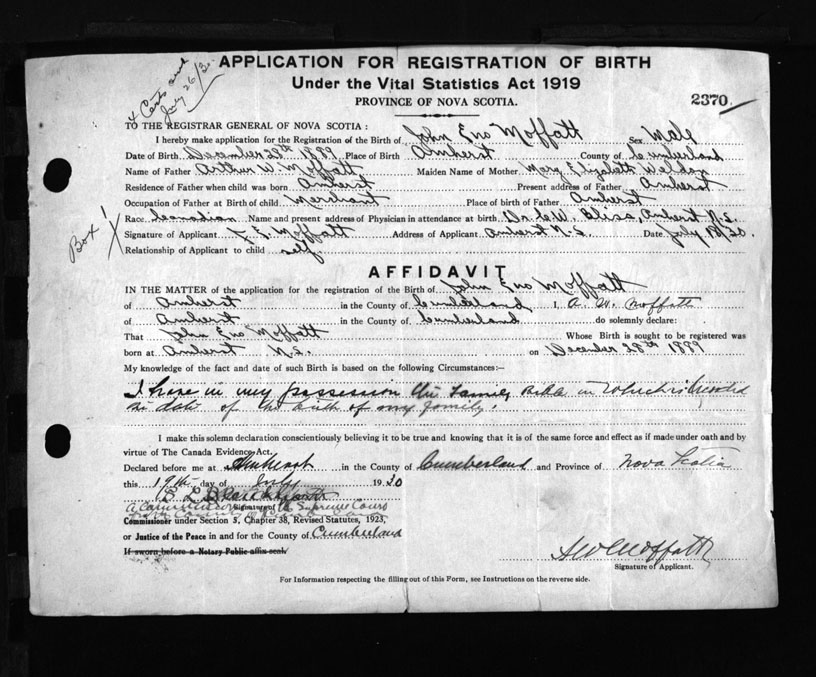 x Certs and
July 26/30
APPLICATION FOR REGISTRATION OF BIRTH
Under the Vital Statistics Act 1919
PROVINCE OF NOVA SCOTIA.
2370
TO THE REGISTRAR GENERAL OF NOVA SCOTIA :
I hereby make application for the Registration of the Birth of John Eno Moffatt Sex Male
Date of Birth December 28th 1889 Place of Birth Amherst County of Cumberland
Name of Father Arthur W. Moffatt Maiden Name of Mother Mary Elizabeth Weldon
Residence of Father when child was born Amherst Present address of Father Amherst
Occupation of Father at Birth of child Merchant Place of birth of Father Amherst
Race Canadian Name and present address of Physician in attendance at birth Dr C.W. Bliss, Amherst N.S.
Signature of Applicant J. E. Moffatt Address of Applicant Amherst N.S. Date July 18/30.
Relationship of Applicant to child self.
Box 1
AFFIDAVIT
IN THE MATTER of the application for the registration of the Birth of John Eno Moffatt
of Amherst in the County of Cumberland I, A. W. Moffatt
of Amherst in the County of Cumberland do solemnly declare:
That John Eno Moffatt Whose Birth is sought to be registered was
born at Amherst N.S. on December 28th 1889
My knowledge of the fact and date of such Birth is based on the following Circumstances:—
I have in my possession the Family Bible in which is recorded
the date of the birth of my family.
I make this solemn declaration conscientiously believing it to be true and knowing that it is of the same force and effect as if made under oath and by
virtue of The Canada Evidence Act.
Declared before me at Amherst in the County of Cumberland and Province of Nova Scotia
this 19th day of July 1930
Signature of
A Commissioner of the Supreme Court
Commissioner under Section 5, Chapter 38, Revised Statutes, 1923,
or Justice of the Peace in and for the County of Cumberland
If sworn before a Notary Public affix seal
A W Moffatt
Signature of Applicant.
For Information respecting the filling out of this Form, see Instructions on the reverse side.